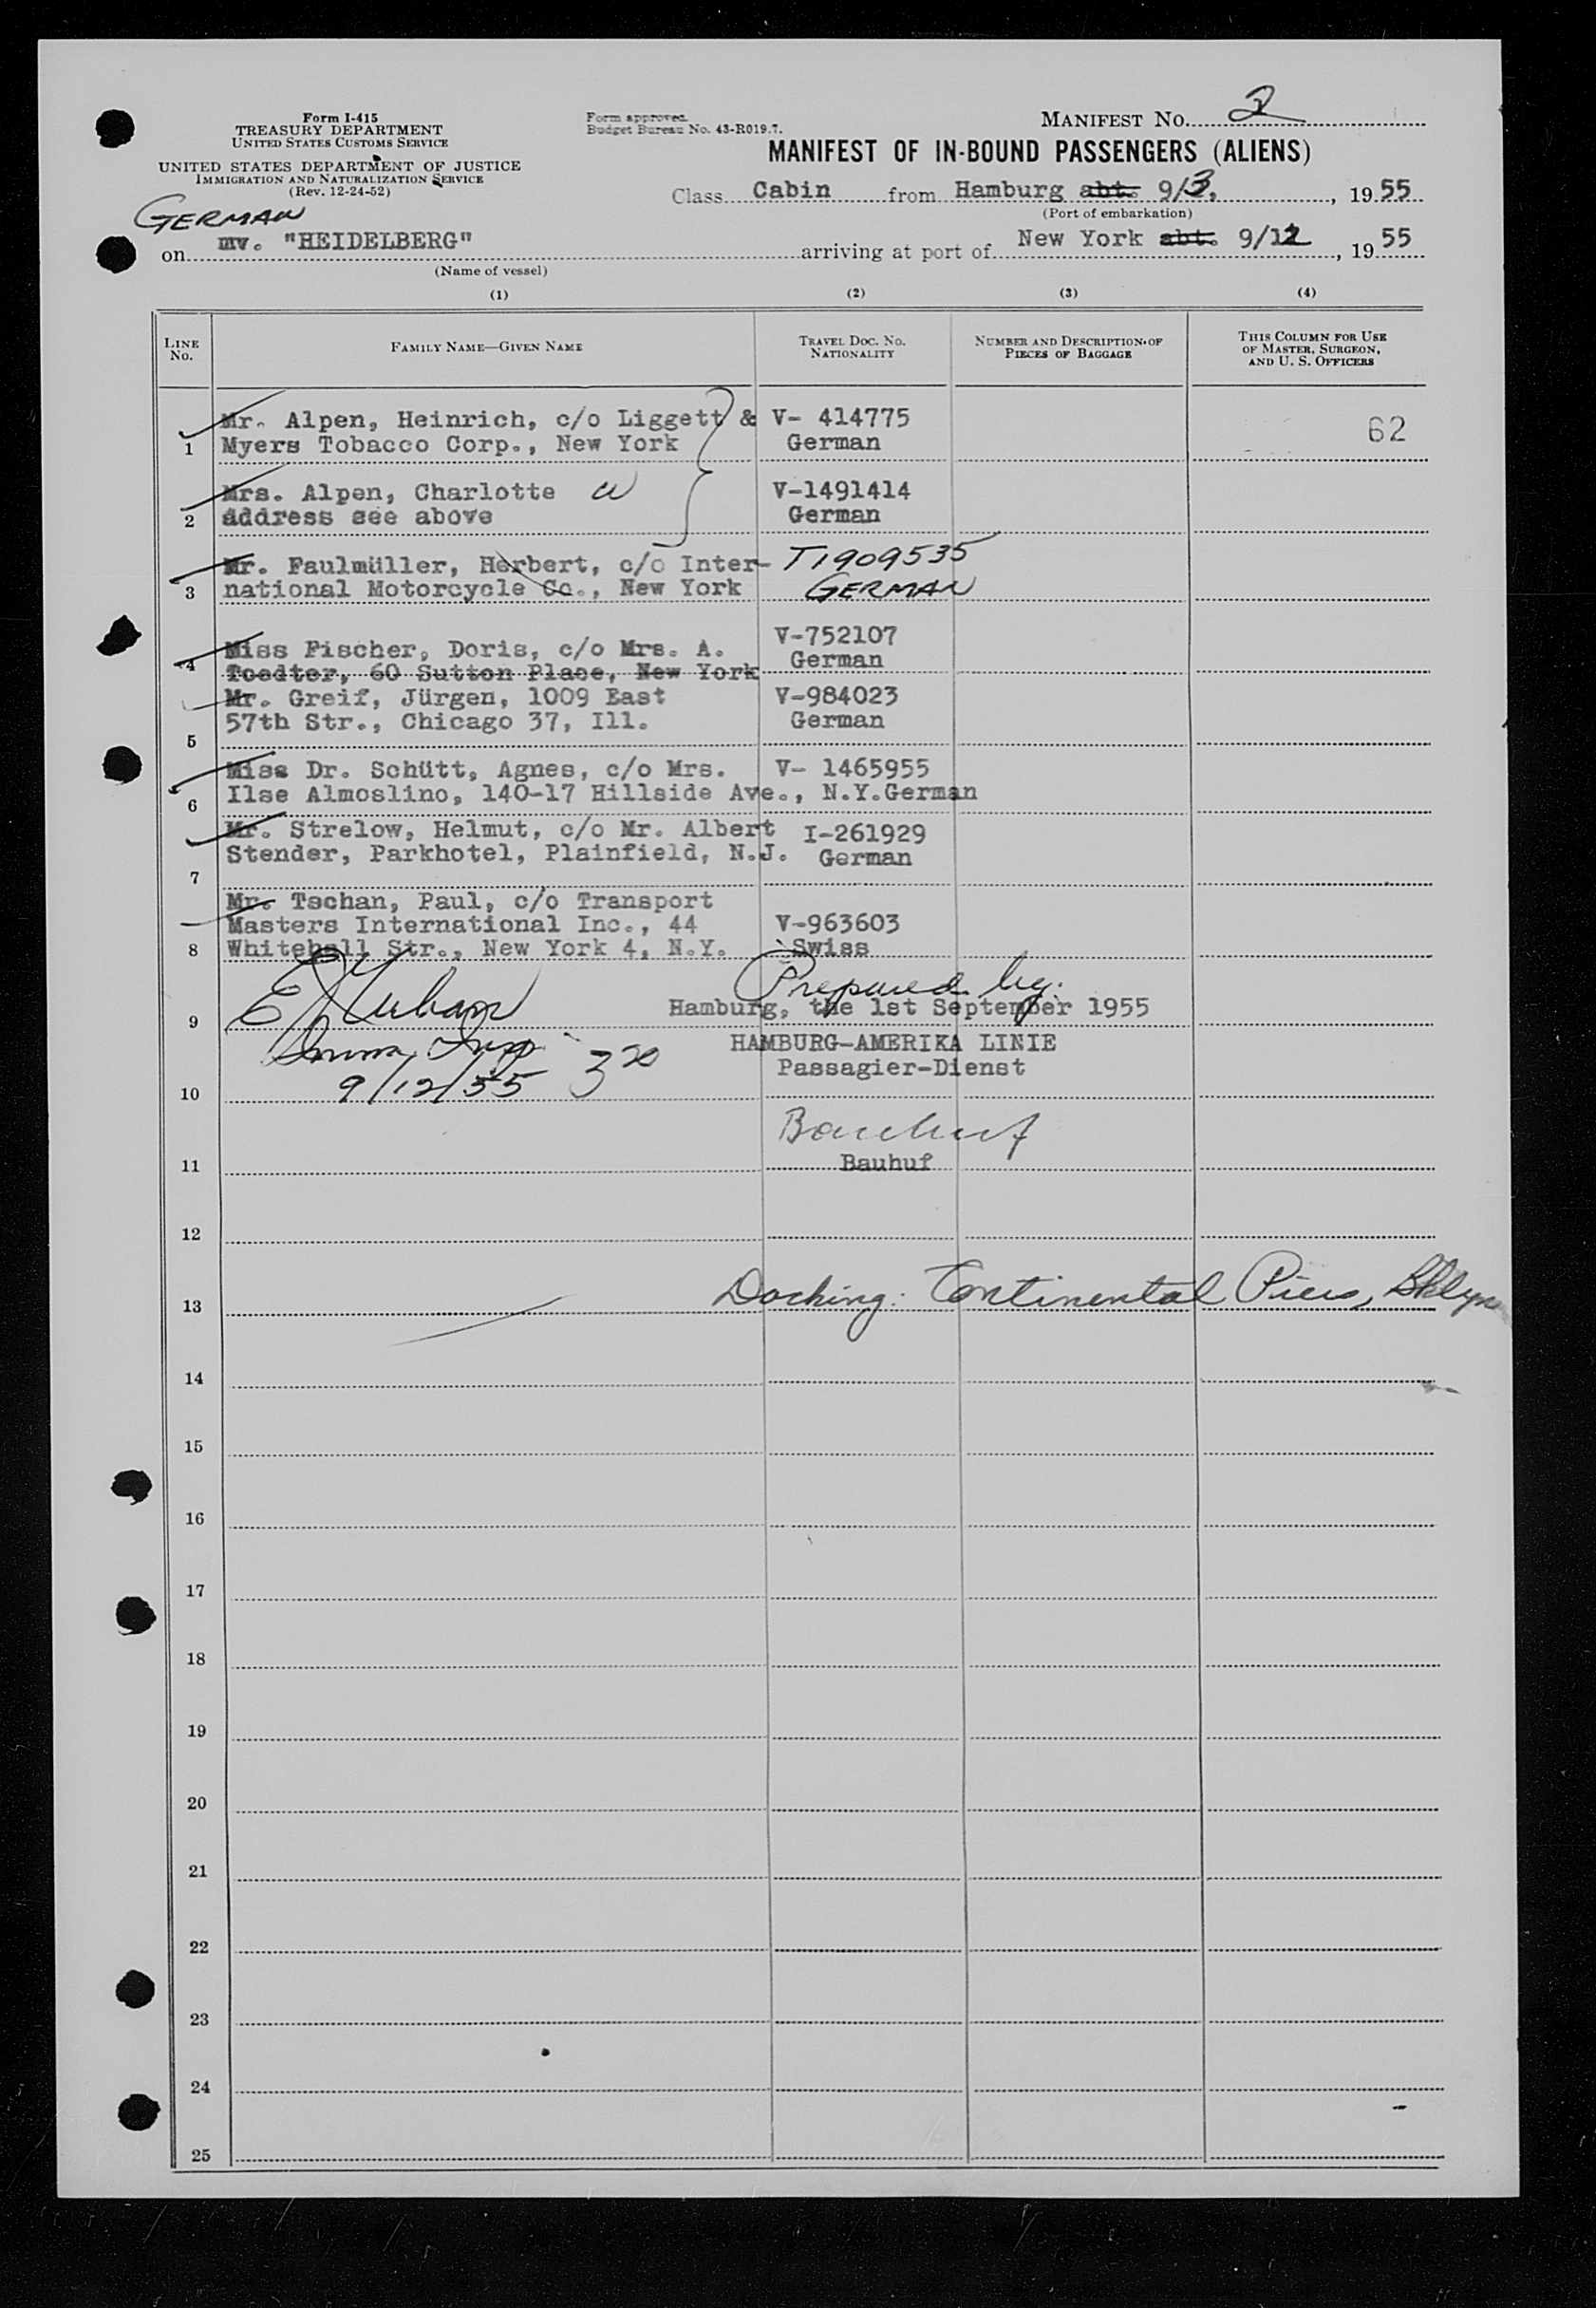 Form I-415
TREASURY DEPARTMENT
UNITED STATES CUSTOMS SERVICE
UNITED STATES DEPARTMENT OF JUSTICE
IMMIGRATION AND NATURALIZATION SERVICE
(Rev. 12-24-52)
Form approved.
Budget Bureau No. 43-R019.7.
MANIFEST No. 2
MANIFEST OF IN-BOUND PASSENGERS (ALIENS)
Class Cabin from Hamburg abt. 9/3, 1955
(Port of embarkation)
GERMAN
on mv. "HEIDELBERG" arriving at port of New York abt. 9/12, 1955
(Name of vessel)
(1) (2) (3) (4)
LINE No. FAMILY NAME—GIVEN NAME TRAVEL DOC. NO. NATIONALITY NUMBER AND DESCRIPTION OF PIECES OF BAGGAGE THIS COLUMN FOR USE OF MASTER, SURGEON, AND U. S. OFFICERS
Mr. Alpen, Heinrich, c/o Liggett & V- 414775 62
1 Myers Tobacco Corp., New York German
Mrs. Alpen, Charlotte W V-1491414
2 address see above German
Mr. Faulmüller, Herbert, c/o Inter- T1909535
3 national Motorcycle Co., New York GERMAN
Miss Fischer, Doris, c/o Mrs. A. V-752107
4 Toedter, 60 Sutton Place, New York German
Mr. Greif, Jürgen, 1009 East V-984023
57th Str., Chicago 37, Ill. German
5
Miss Dr. Schütt, Agnes, c/o Mrs. V- 1465955
6 Ilse Almoslino, 140-17 Hillside Ave., N.Y. German
Mr. Strelow, Helmut, c/o Mr. Albert I-261929
Stender, Parkhotel, Plainfield, N.J. German
7
Mr. Tschan, Paul, c/o Transport
Masters International Inc., 44 V-963603
8 Whitehall Str., New York 4, N.Y. Swiss
Prepared by:
9 Hamburg, the 1st September 1955
Imm. Insp. HAMBURG-AMERIKA LINIE
Passagier-Dienst
10 9/12/55 3 20
Bauhuf
11 Bauhuf
12
13 Docking: Continental Piers, Bklyn
14
15
16
17
18
19
20
21
22
23
24
25